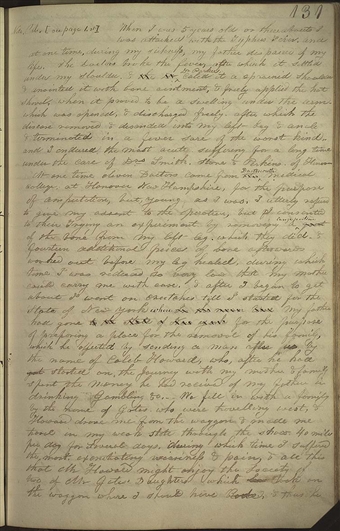 131
When I was 5 years old or thereabouts I
was attacked with the Typhus Fever, and
at one time, during my sickness, my father despaired of my
life. The doctors broke the fever, after which it settled
under my shoulder, & Dr. Parker called it a sprained shoulder
& anointed it with bone ointment, & freely applied the hot
shovel, when it proved to be a swelling under the arm
which was opened, & discharged freely, after which the
disease removed & descended into my left leg & ancle
& terminated in a fever sore of the worst kind,
and I endured the most acute suffering for a long time
under the care of Drs. Smith, Stone & Perkins, of Hanover
At one time eleven Doctors came from Dartmouth Medical
College, at Hanover New Hampshire, for the purpose
of amputation, but, young as I was, I utterly refused
to give my assent to the operation, but consented
to their trying an experiment by removing
of the bone from my left leg, which they did, &
fourteen additional pieces of bone afterwards
worked out before my leg healed, during which
time I was reduced so very low that my mother
could carry me with ease. & after I began to get
about I went on crutches till I started for the
State of New York where my father
had gone for the purpose
of preparing a place for the removal of his family,
which he effected by sending a man after us by
the name of Caleb Howard, who, after he had
started on the journey with my mother & family
spent the money he had received of my father in
drinking & gambling &c. We fell in with a family
by the name of Gates who were travelling west, &
Howard drove me from the waggon & made me
travel in my weak state through the snow 40 miles
per day for several days, during which time I suffered
the most excruciating weariness & pain, & all this
that Mr. Howard might enjoy the society of
two of Mr. Gates Daughters which he took on
the waggon where I should have rode, & thus he